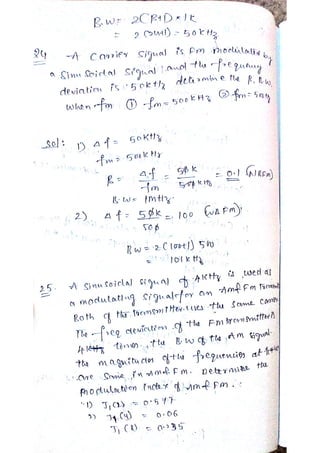 B.W = 2(β+1) × 1k
= 2(24+1) = 50kHz
24 A carrier signal is Fm modulated by
a Sinusoidal Signal and the frequency
deviation is 50kHz determine the B.W.
when fm ① fm = 500kHz ② fm = 500Hz
Sol: 1) Δf = 50kHz
fm = 500kHz
β = Δf/fm = 50k/500kHz = 0.1 (NBFm)
B.W = 1MHz
2) Δf = 50k/500 = 100 (WBFm)
BW = 2(100+1) 500
= 101kHz
25. A sinusoidal signal of 4KHz is used as
a modulating signal for an Am & Fm
Both of the transmitter uses the same
The freq deviation of the Fm transmitter is
4 times the BW of the Am signal.
the magnitudes of the frequencies at
are same in Am & Fm. Determine the
modulation index of Am & Fm.:
1) J1(2) = 0.577
2) J1(4) = 0.06